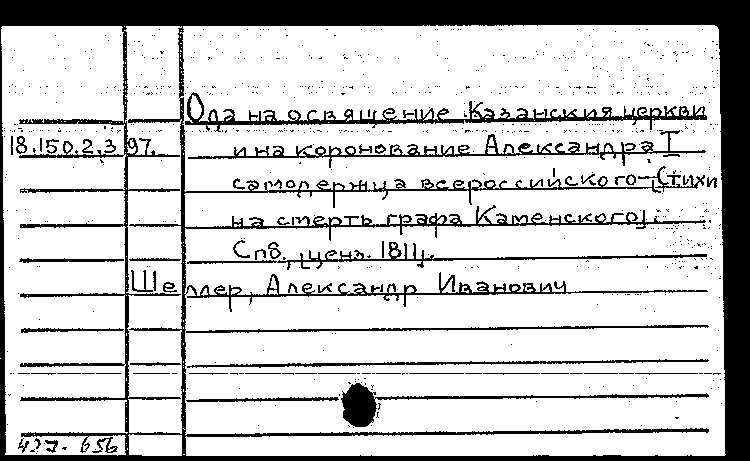 Ода на освящение Казанския церкви
18.150.2.3 97. и на коронование Александра I
самодержца всероссийского-[Стихи
на смерть графа Каменского].
Спб., [ценз. 1811].
Шеллер, Александр Иванович
427-656